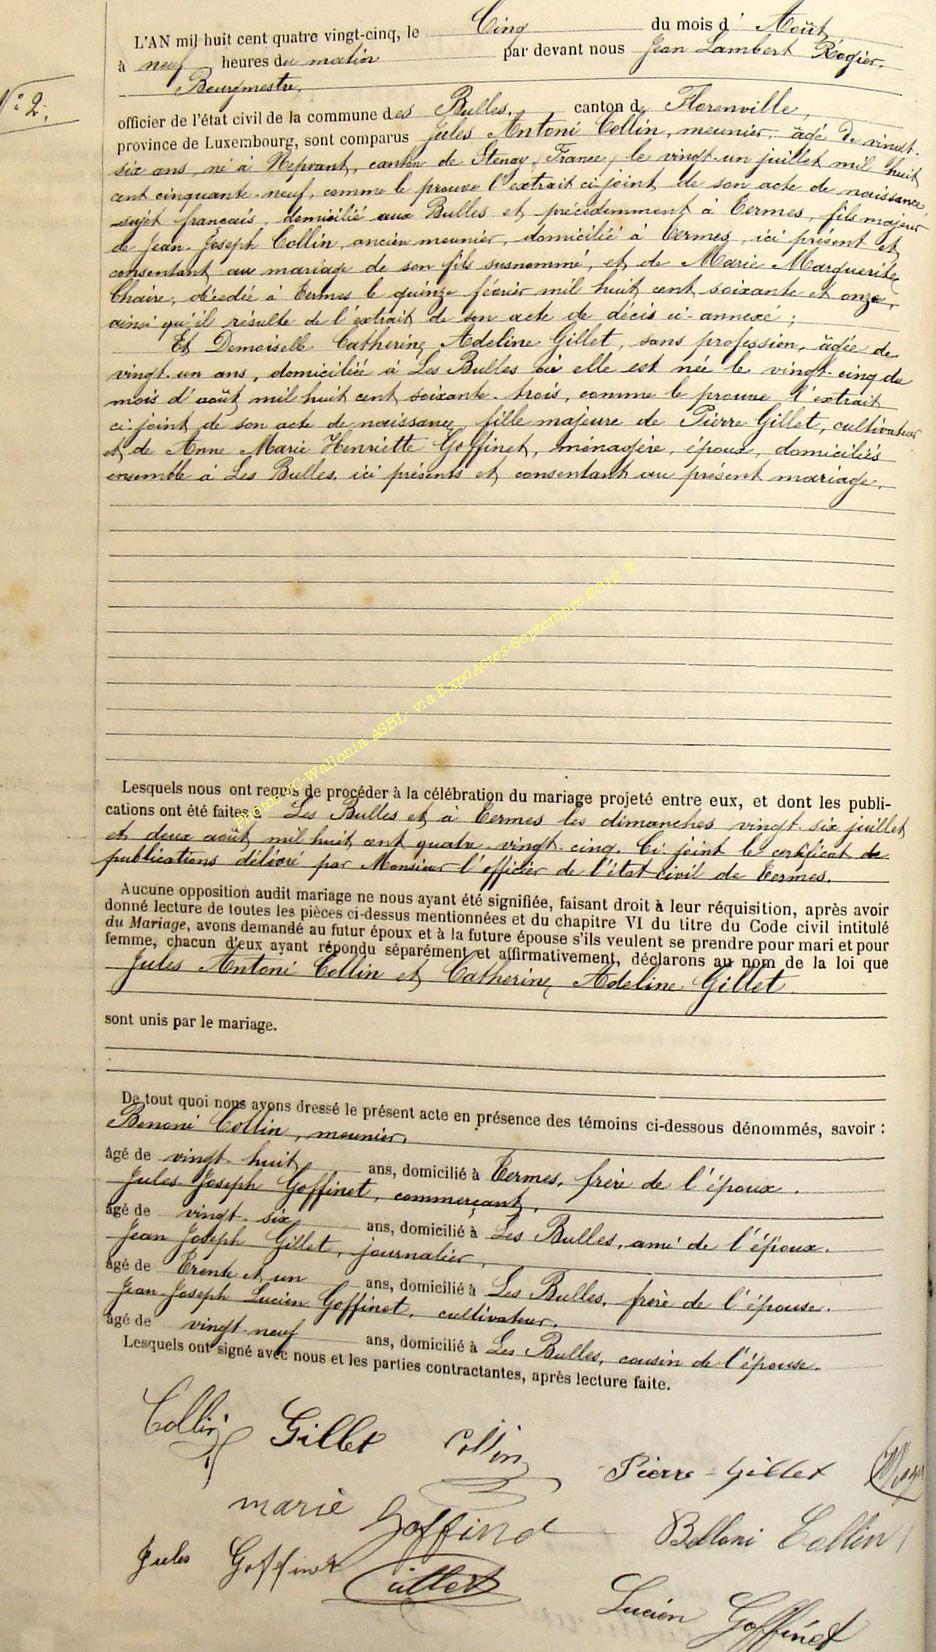 L'AN mil huit cent quatre vingt-cinq, le Cinq du mois d' Août
à neuf heures du matin par devant nous Jean Lambert Rogier,
Bourgmestre,
N° 2.
officier de l'état civil de la commune des Bulles, canton de Florenville,
province de Luxembourg, sont comparus Jules Antoni Collin, meunier, âgé de vingt-
six ans, né à Nepvant, canton de Stenay, France, le vingt-un juillet mil huit
cent cinquante-neuf, comme le prouve l'extrait ci-joint de son acte de naissance,
sujet français, domicilié aux Bulles et précédemment à Termes, fils majeur
de Jean-Joseph Collin, ancien meunier, domicilié à Termes, ici présent et
consentant au mariage de son fils susnommé, et de Marie Marguerite
Chaire, décédée à Termes le quinze février mil huit cent soixante et onze,
ainsi qu'il résulte de l'extrait de son acte de décès ci-annexé ;
Et Demoiselle Catherine Adeline Gillet, sans profession, âgée de
vingt-un ans, domiciliée à Les Bulles où elle est née le vingt-cinq du
mois d'août mil huit cent soixante-trois, comme le prouve l'extrait
ci-joint de son acte de naissance, fille majeure de Pierre Gillet, cultivateur
et de Anne Marie Henriette Goffinet, ménagère, époux, domiciliés
ensemble à Les Bulles, ici présents et consentant au présent mariage.
Photos JC-Wallonia ASBL- via ExpoActes-Septembre 2012 ©
Lesquels nous ont requis de procéder à la célébration du mariage projeté entre eux, et dont les publi-
cations ont été faites à Les Bulles et à Termes les dimanches vingt-six juillet
et deux août mil huit cent quatre-vingt-cinq. Ci-joint le certificat de
publications délivré par Monsieur l'officier de l'état-civil de Termes.
Aucune opposition audit mariage ne nous ayant été signifiée, faisant droit à leur réquisition, après avoir
donné lecture de toutes les pièces ci-dessus mentionnées et du chapitre VI du titre du Code civil intitulé
du Mariage, avons demandé au futur époux et à la future épouse s'ils veulent se prendre pour mari et pour
femme, chacun d'eux ayant répondu séparément et affirmativement, déclarons au nom de la loi que
Jules Antoni Collin et Catherine Adeline Gillet
sont unis par le mariage.
De tout quoi nous avons dressé le présent acte en présence des témoins ci-dessous dénommés, savoir :
Benoni Collin, meunier,
âgé de vingt-huit ans, domicilié à Termes, frère de l'époux.
Jules Joseph Goffinet, commerçant,
âgé de vingt-six ans, domicilié à Les Bulles, ami de l'époux.
Jean Joseph Gillet, journalier,
âgé de Trente et un ans, domicilié à Les Bulles, frère de l'épouse.
Jean-Joseph Lucien Goffinet, cultivateur,
âgé de vingt-neuf ans, domicilié à Les Bulles, cousin de l'épouse.
Lesquels ont signé avec nous et les parties contractantes, après lecture faite.
Collin Gillet Collin Pierre Gillet
marie Goffinet Belloni Collin
Jules Goffinet Gillet Lucien Goffinet